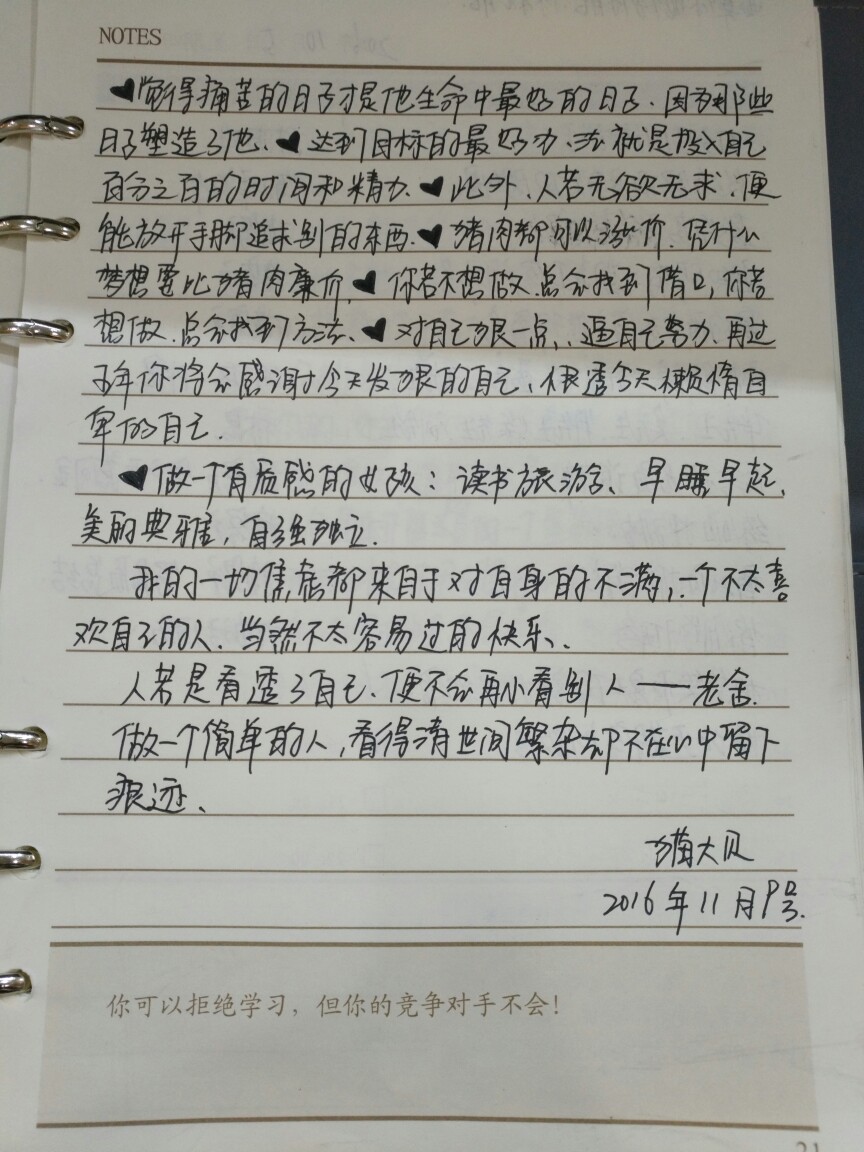 NOTES
♥觉得痛苦的日子才是他生命中最好的日子、因为那些
日子塑造了他、♥达到目标的最好办法就是投入自己
百分之百的时间和精力、♥此外、人若无欲无求、便
能放开手脚追求别的东西、♥猪肉都可以涨价、凭什么
梦想要比猪肉廉价、♥你若不想做、总会找到借口，你若
想做、总会找到方法、♥对自己狠一点、逼自己努力、再过
五年你将会感谢今天发狠的自己、恨透今天懒惰自
卑的自己.
♥做一个有质感的女孩：读书旅游、早睡早起、
美的典雅，自强独立.
我的一切焦虑都来自于对自身的不满，一个不太喜
欢自己的人、当然不太容易过的快乐、
人若是看透了自己、便不会再小看别人——老舍.
做一个简单的人，看得清世间繁杂却不在心中留下
痕迹、
猫大贝
2016年11月9号.
你可以拒绝学习，但你的竞争对手不会！